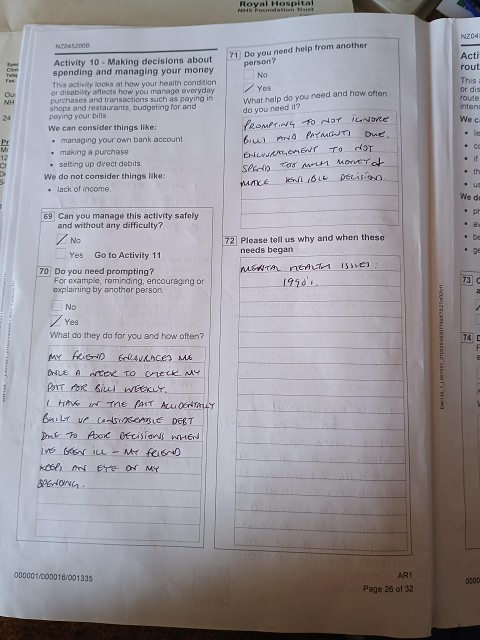 Royal Hospital
NHS Foundation Trust
NZ045200B
Activity 10 - Making decisions about
spending and managing your money
This activity looks at how your health condition
or disability affects how you manage everyday
purchases and transactions such as paying in
shops and restaurants, budgeting for and
paying your bills.
We can consider things like:
• managing your own bank account
• making a purchase
• setting up direct debits.
We do not consider things like:
• lack of income.
69 Can you manage this activity safely
and without any difficulty?
No
Yes Go to Activity 11
70 Do you need prompting?
For example, reminding, encouraging or
explaining by another person.
No
Yes
What do they do for you and how often?
MY FRIEND ENCOURAGES ME
ONCE A WEEK TO CHECK MY
POST FOR BILLS WEEKLY.
I HAVE IN THE PAST ACCIDENTALLY
BUILT UP CONSIDERABLE DEBT
DUE TO POOR DECISIONS WHEN
IVE BEEN ILL - MY FRIEND
KEEPS AN EYE ON MY
SPENDING.
71 Do you need help from another
person?
No
Yes
What help do you need and how often
do you need it?
PROMPTING TO NOT IGNORE
BILLS AND PAYMENTS DUE.
ENCOURAGEMENT TO NOT
SPEND TOO MUCH MONEY &
MAKE SENSIBLE DECISIONS.
72 Please tell us why and when these
needs began
MENTAL HEALTH ISSUES:
1990s.
000001/000016/001335
AR1
Page 26 of 32
NZ04
Acti
rout
This
or dis
route
We c
73
74
0000